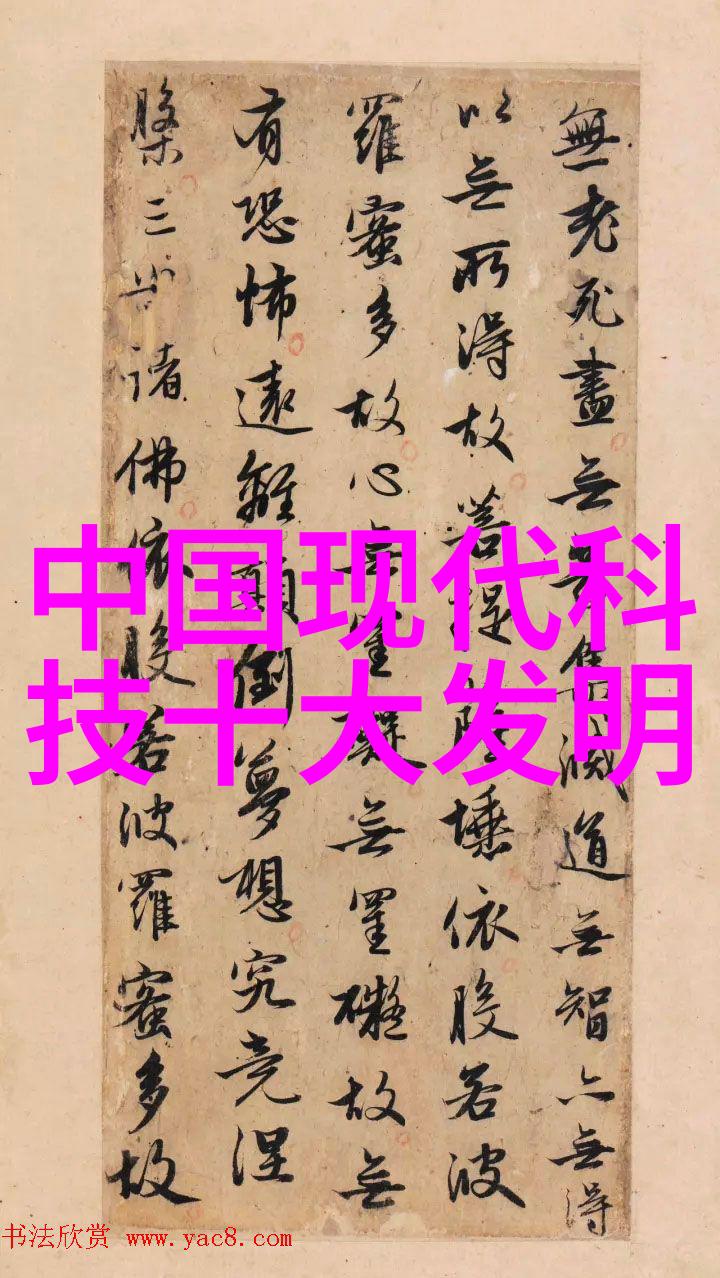 無老死盡無苦集滅道無智亦無得
以無所得故菩提薩埵依般若波
羅蜜多故心無罣礙無罣礙故無
有恐怖遠離顛倒夢想究竟涅
槃三世諸佛依般若波羅蜜多故
中国现代科
技十大发明
书法欣赏 www.yac8.com